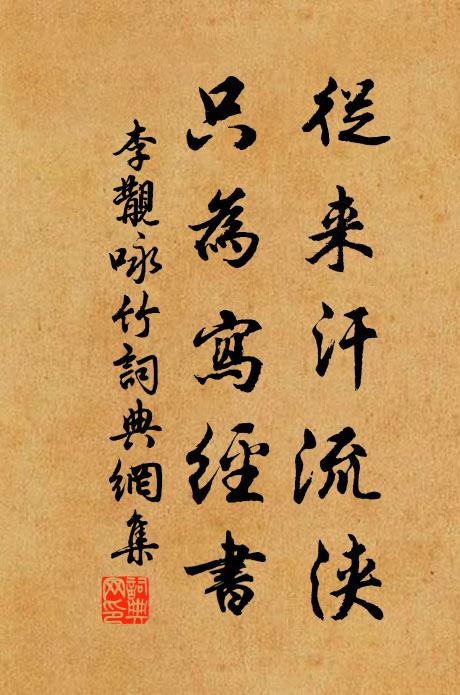 從来汗流浹
只為寫經書
李覯咏竹詞典網集
詞典网印